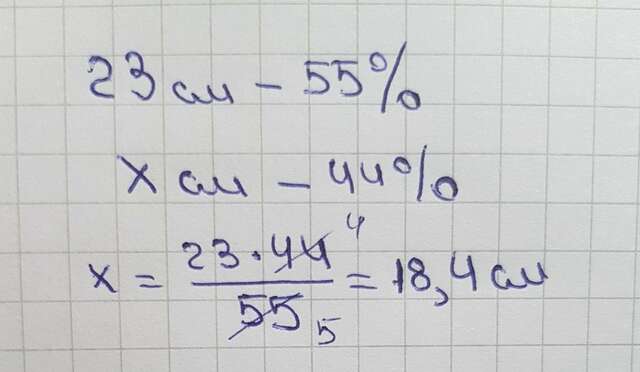 23 см - 55%
x см - 44%
x = 23·44 4 / 55 5 = 18,4 см